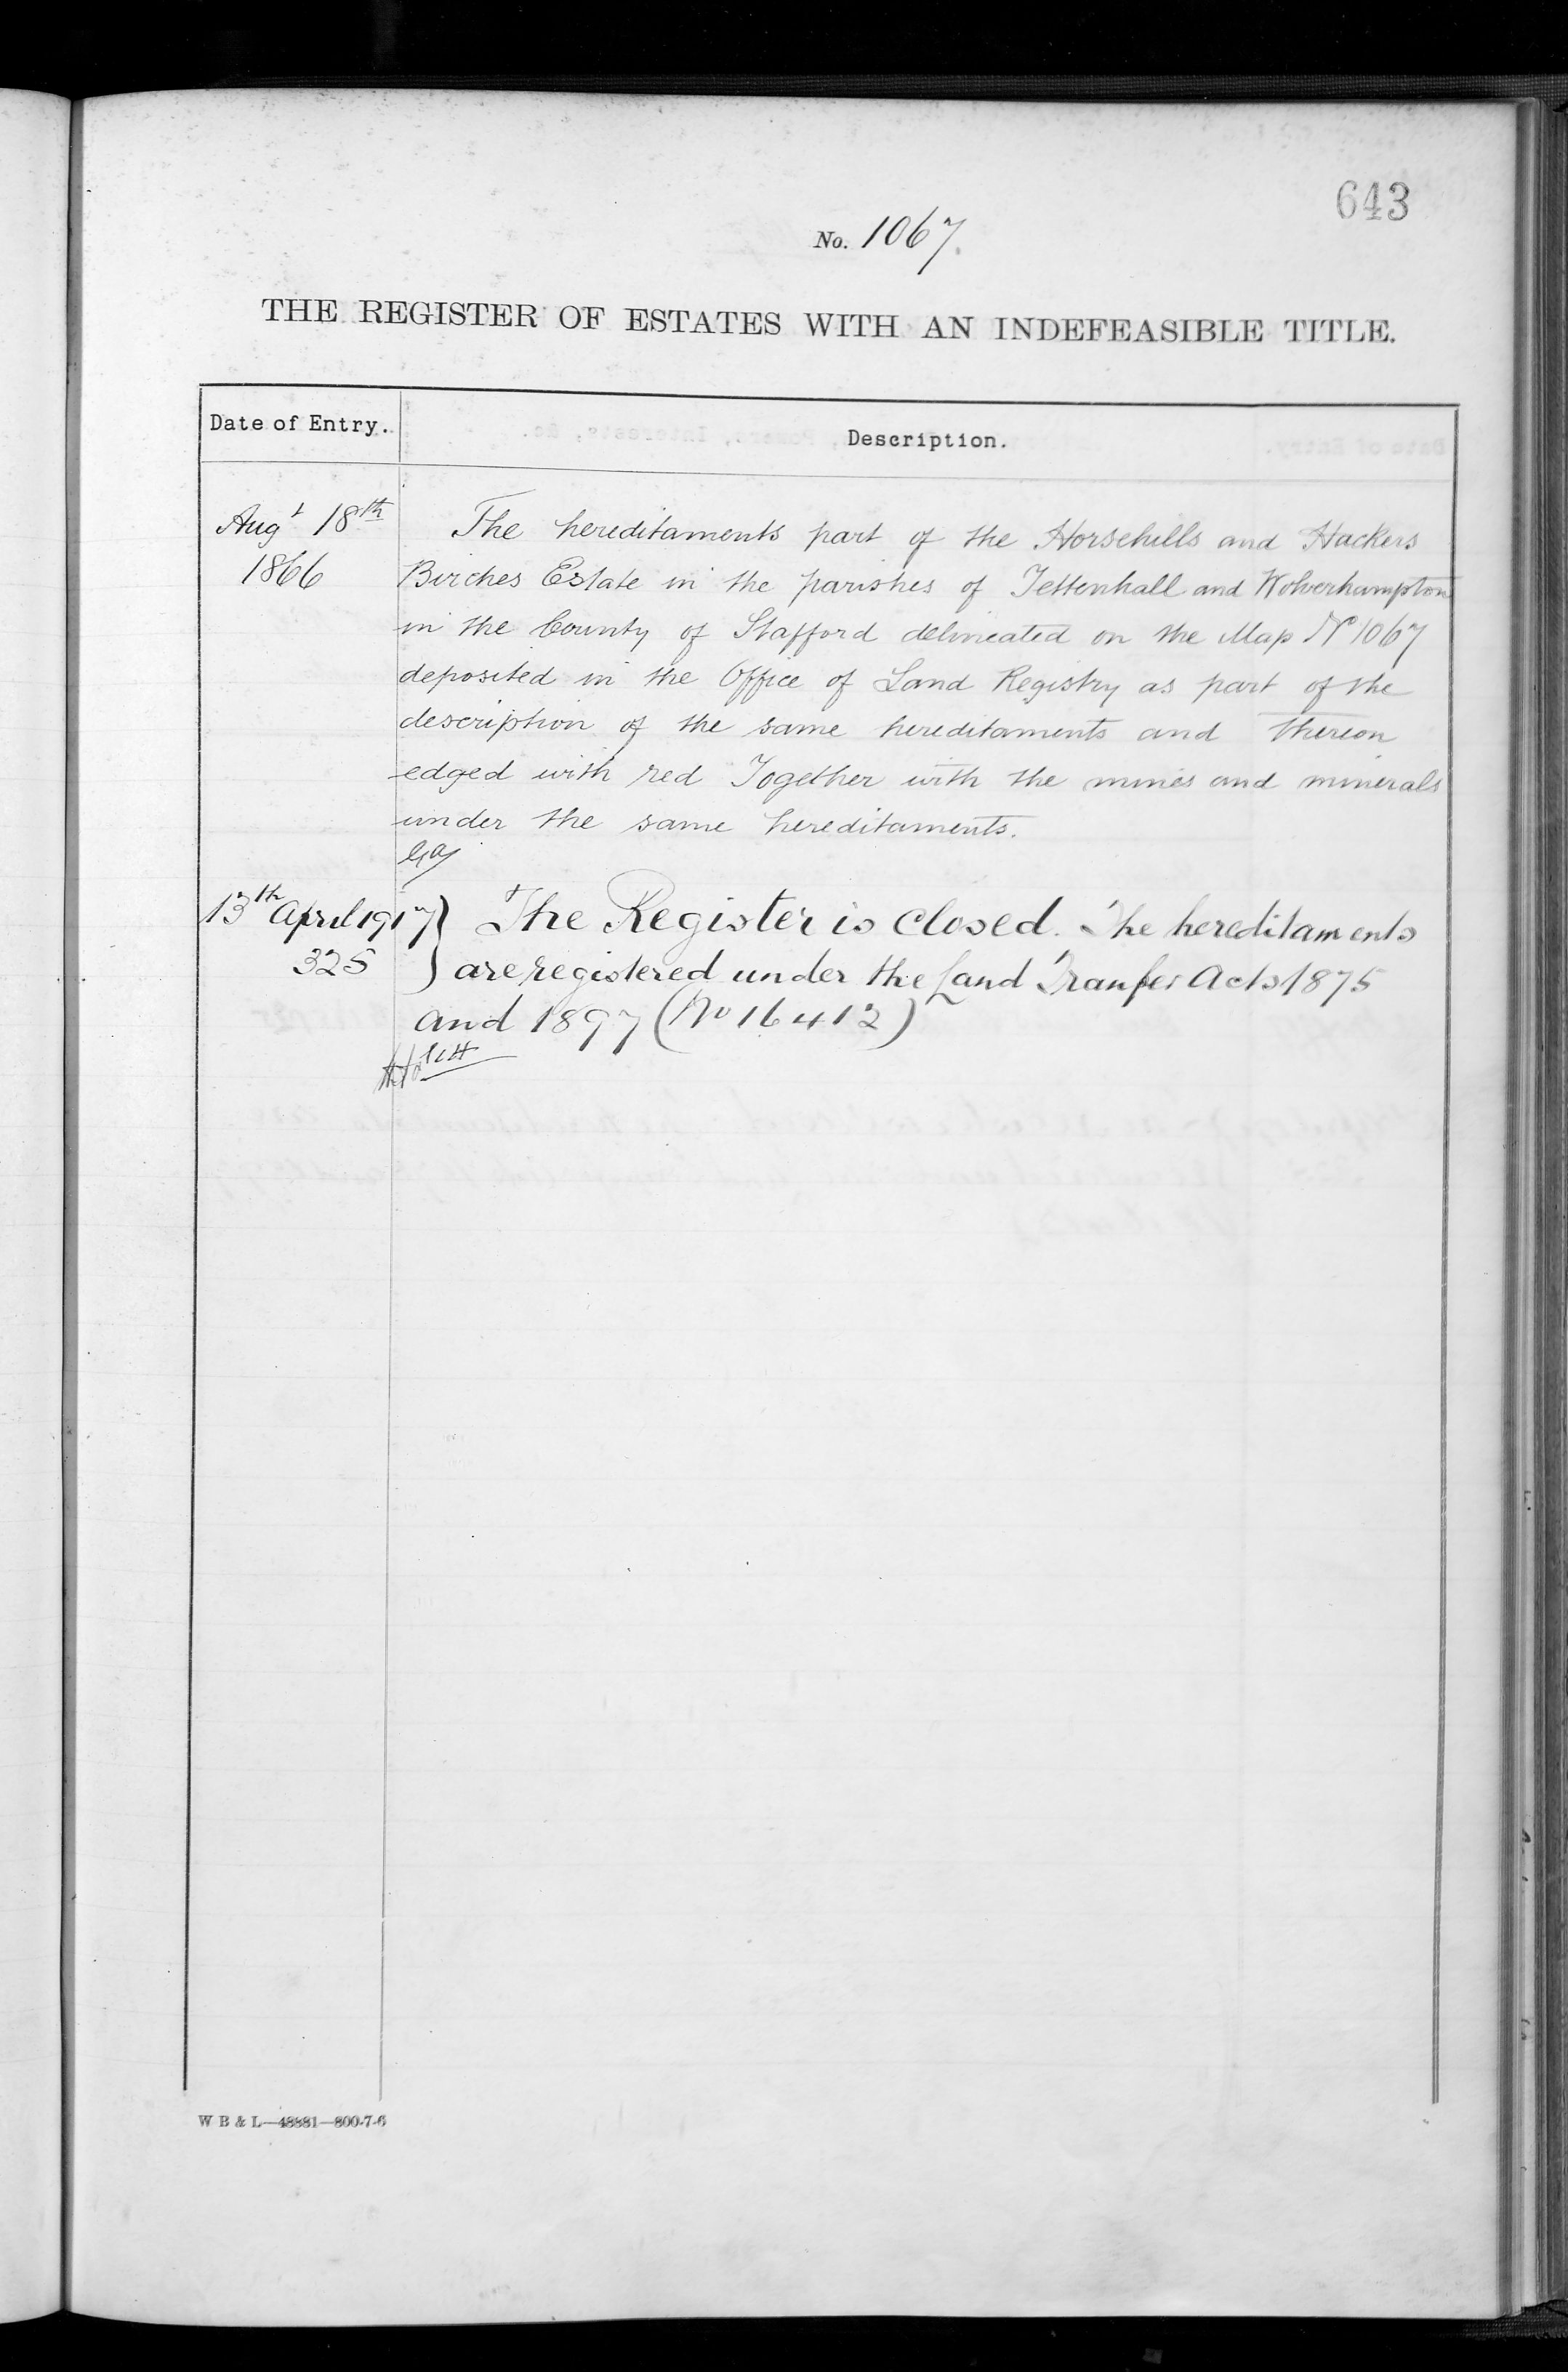 643
No. 1067.
THE REGISTER OF ESTATES WITH AN INDEFEASIBLE TITLE.
Date of Entry.
Description.
Augt 18th
1866
The hereditaments part of the Horsehills and Hackers
Birches Estate in the parishes of Tettenhall and Wolverhampton
in the County of Stafford delineated on the Map No 1067
deposited in the Office of Land Registry as part of the
description of the same hereditaments and thereon
edged with red Together with the mines and minerals
under the same hereditaments.
13th April 1917
325
The Register is closed. The hereditaments
are registered under the Land Tranfer Acts 1875
and 1897 (No 16412)
W B & L—48881—800-7-6